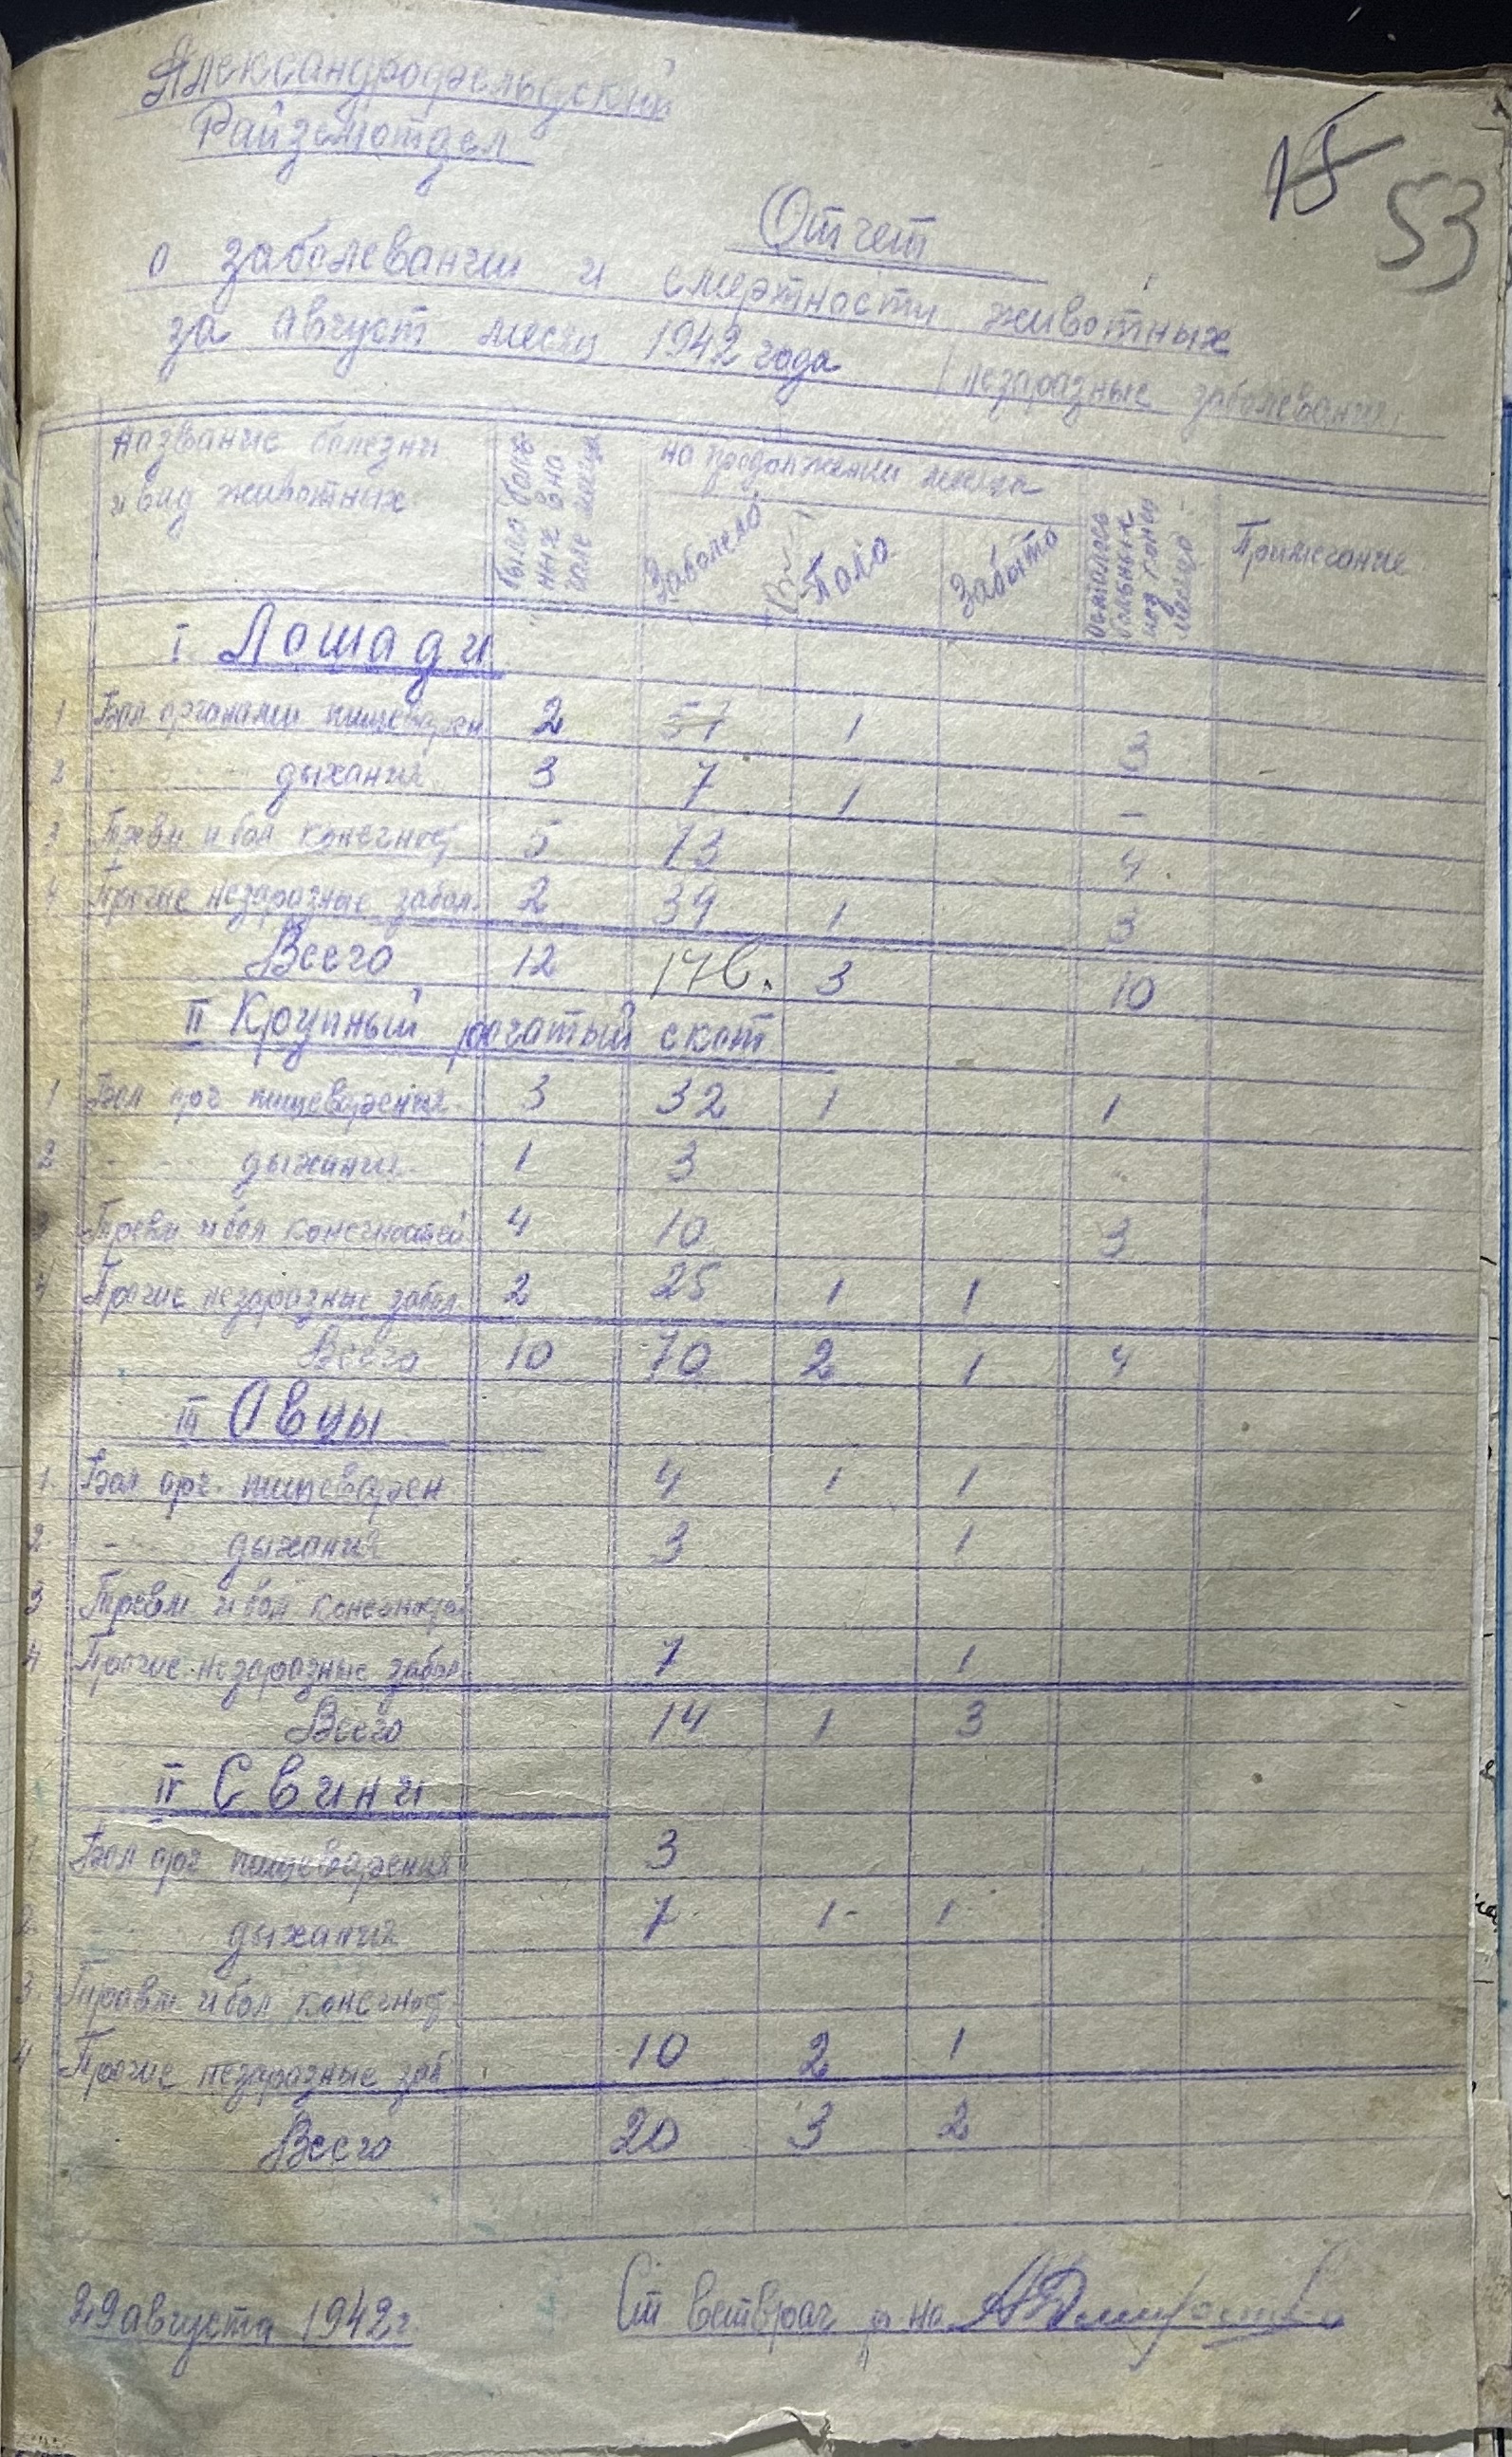 Александрофельдский
Райземотдел
15 53
Отчет
о заболевании и смертности животных
за август месяц 1942 года
незаразные заболевания
Название болезни и вид животных было больных в начале месяца на продолжении месяца Заболело Пало Забыто Осталось больных месяца Примечание
I Лошади
1 Бол органами пищеварен 2 1 3
2 дыхания 3 7 1 –
3 Травм и бол конечност 5 13 4
4 Прочие незаразные забол. 2 39 1 3
Всего 12 3 10
II Крупный рогатый скот
1 Бол орг пищеварения 3 32 1 1
2 дыхания 1 3
3 Травм и бол конечностей 4 10 3
4 Прочие незаразные забол 2 25 1 1
Всего 10 70 2 1 4
III Овцы
1. Бол орг. пищеварен 4 1 1
2. дыхания 3 1
3 Травм и бол конечностей
4 Прочие незаразные забол. 7 1
Всего 14 1 3
IV Свини
1 Бол орг пищеварения 3
2 дыхания 7 1 1
3 Травм и бол конечност
4 Прочие незаразные заб 10 2 1
Всего 20 3 2
29 августа 1942 г. Ст ветврач р-на